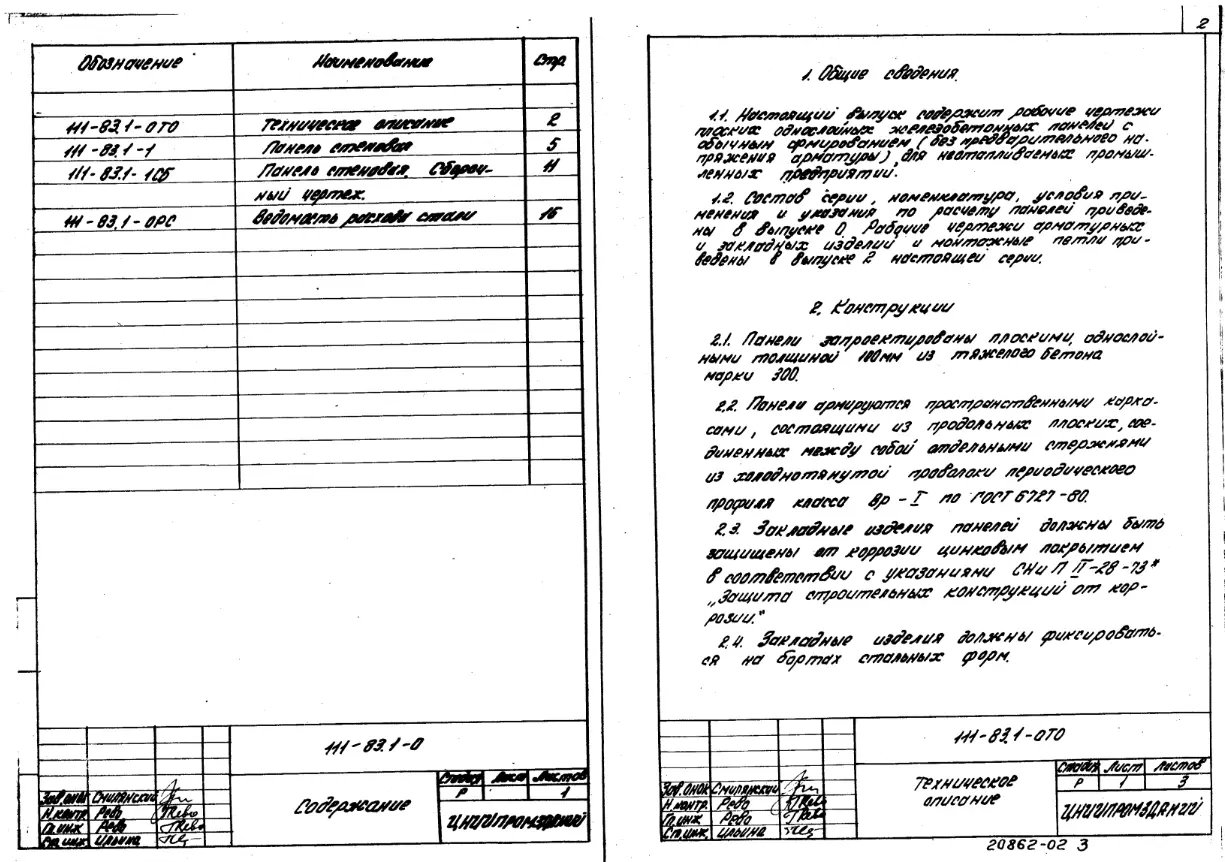 Обозначение Наименование Стр.
111-83.1-0ТО Техническое описание 2
111-83.1-1 Панель стеновая 5
111-83.1-1СБ Панель стеновая. Сбороч- 11
ный чертеж.
111-83.1-0РС Ведомость расхода стали 16
111-83.1-0
Содержание
Стадия Лист Листов
Р 1
ЦНИИПРОМЗДАНИЙ
Зав.ОНОК Смилянский
Н.контр. Рево
Гл.инж. Рево
Ст.инж. Ильина
2
1. Общие сведения.
1.1. Настоящий выпуск содержит рабочие чертежи
плоских однослойных железобетонных панелей с
обычным армированием (без предварительного на-
пряжения арматуры) для неотапливаемых промыш-
ленных предприятий.
1.2. Состав серии, номенклатура, условия при-
менения и указания по расчету панелей приведе-
ны в выпуске 0. Рабочие чертежи арматурных
и закладных изделий и монтажные петли при-
ведены в выпуске 2 настоящей серии.
2. Конструкции
2.1. Панели запроектированы плоскими, однослой-
ными толщиной 100мм из тяжелого бетона
марки 300.
2.2. Панели армируются пространственными карка-
сами, состоящими из продольных плоских, сое-
диненных между собой отдельными стержнями
из холоднотянутой проволоки периодического
профиля класса Вр-I по ГОСТ 6727-80.
2.3. Закладные изделия панелей должны быть
защищены от коррозии цинковым покрытием
в соответствии с указаниями СНиП II-28-73*
„Защита строительных конструкций от кор-
розии."
2.4. Закладные изделия должны фиксировать-
ся на бортах стальных форм.
111-83.1-0ТО
Техническое
описание
Стадия Лист Листов
Р 1 3
ЦНИИПРОМЗДАНИЙ
Зав.ОНОК Смилянский
Н.контр. Рево
Гл.инж. Рево
Ст.инж. Ильина
20862-02 3